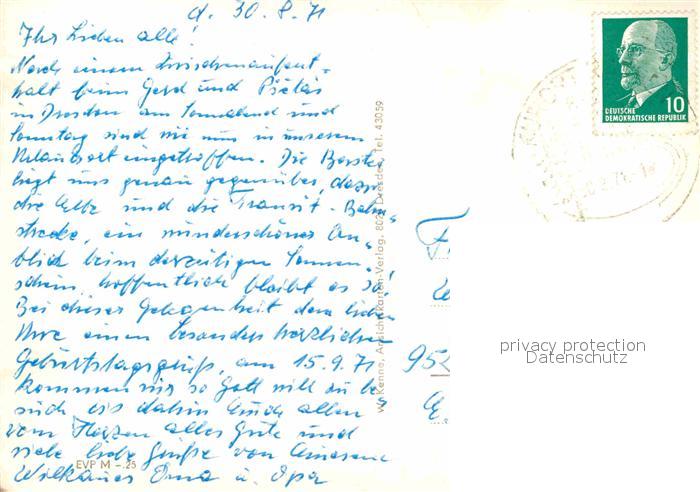 d. 30.8.71
Ihr Lieben alle!
Nach einem Zwischenaufent-
halt beim Gerd und
in Dresden am Sonnabend und
Sonntag sind wir nun in unserem
Urlaubsort eingetroffen. Die Bastei
liegt uns genau gegenüber, dazu
die Elbe und die Transit-Bahn-
strecke, ein wunderschöner An-
blick beim derzeitigen Sonnen-
schein, hoffentlich bleibt es so!
Bei dieser Gelegenheit dem lieben
Uwe einen besonders herzlichen
Geburtstagsgruß, am 15.9.71
kommen wir so Gott will zu Be-
such bis dahin Euch allen
vom Herzen alles Gute und
viele liebe Grüße von
Oma u. Opa
EVP M -.25
Ansichtskarten-Verlag, Dresden, Tel. 43059
10
DEUTSCHE
DEMOKRATISCHE REPUBLIK
privacy protection
Datenschutz